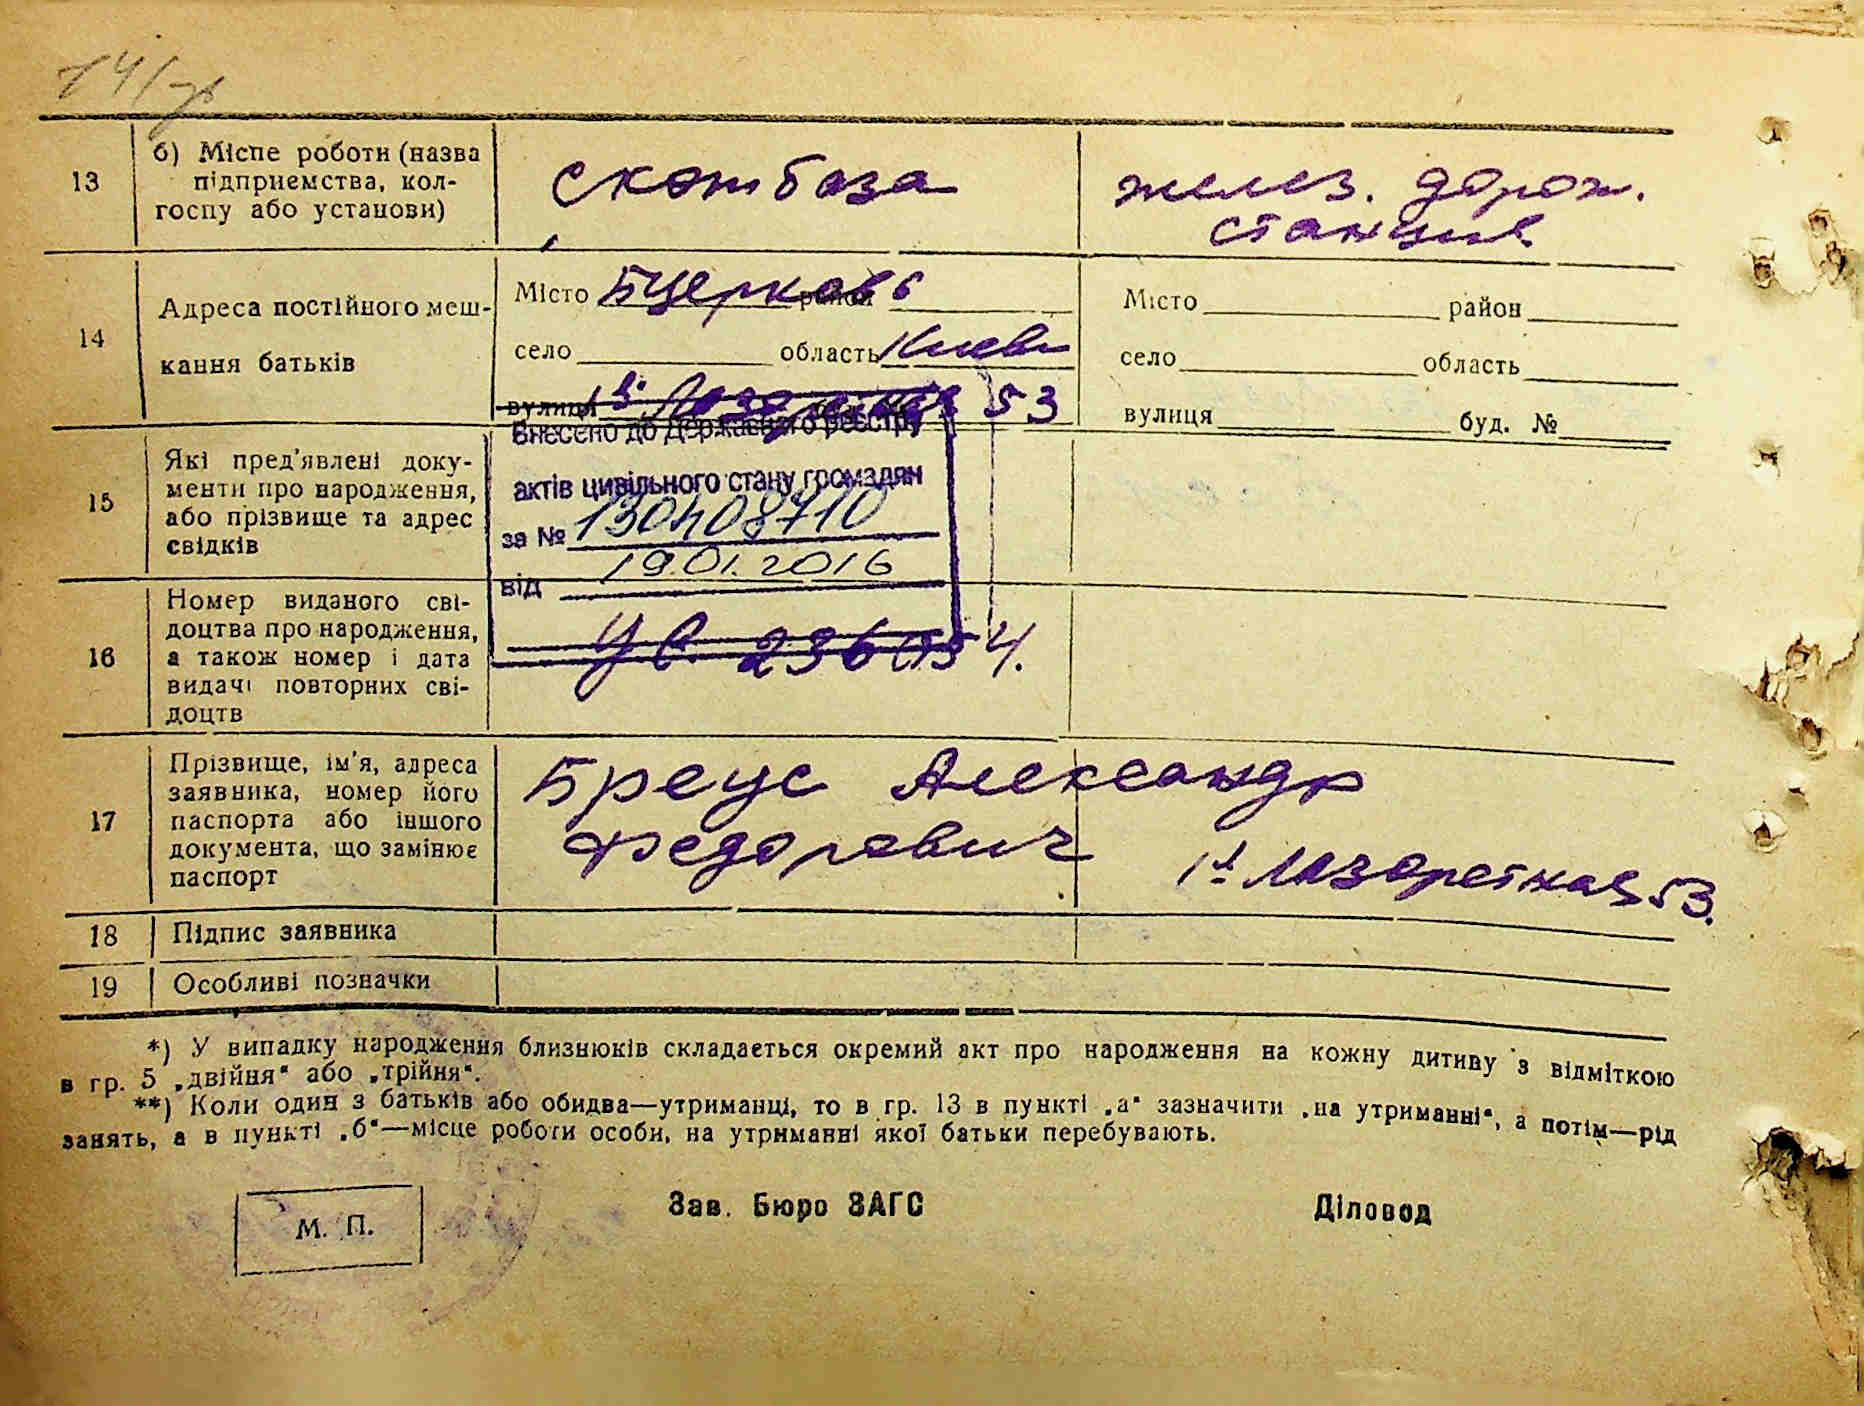 13
б) Місце роботи (назва
підприємства, кол-
госпу або установи)
Скотбаза
желез. дорож.
станция
14
Адреса постійного меш-
кання батьків
Місто БЦерковь район
село область Киевс
вулиця 1я Лазаретная 53
Місто район
село область
вулиця буд. №
15
Які пред'явлені доку-
менти про народження,
або прізвище та адрес
свідків
Внесено до Державного реєстру
актів цивільного стану громадян
за № 130408710
від 19.01.2016
16
Номер виданого сві-
доцтва про народження,
а також номер і дата
видачі повторних сві-
доцтв
17
Прізвище, ім'я, адреса
заявника, номер його
паспорта або іншого
документа, що замінює
паспорт
Бреус Александр
Федорович
1я Лазаретная 53.
18
Підпис заявника
19
Особливі позначки
*) У випадку народження близнюків складається окремий акт про народження на кожну дитину з відміткою
в гр. 5 „двійня“ або „трійня“.
**) Коли один з батьків або обидва—утриманці, то в гр. 13 в пункті „а“ зазначити „на утриманні“, а потім—рід
занять, а в пункті „б“—місце роботи особи, на утриманні якої батьки перебувають.
М. П.
Зав. Бюро ЗАГС
Діловод